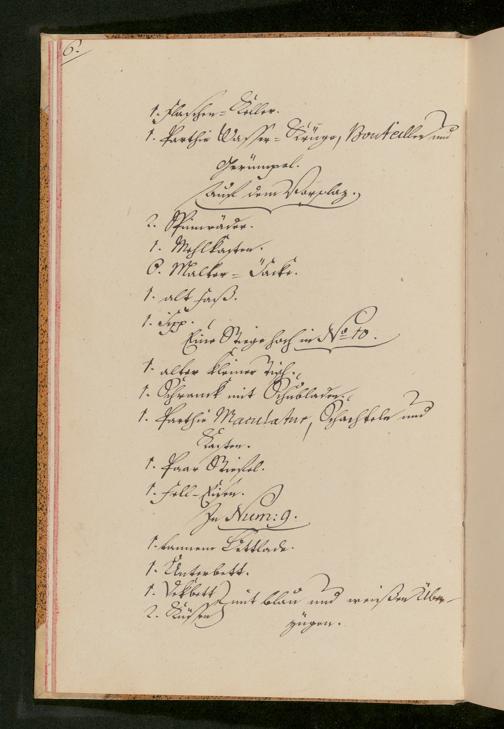 6.
1. Flaschen-Keller.
1. Parthie Wasser-Krüge, Bouteillen und
Gerümpel.
Auf dem Vorplaz.
2. Spinnräder.
1. Mehlkasten.
6. Malter-Säcke.
1. alt Faß.
1.
Eine Stiege hoch in No 10.
1. alter kleiner Tisch.
1. Schranck mit Schubladen.
1. Parthie Maculatur, Schachteln und
Kasten.
1. Paar Stiefel.
1. Fell-Eisen.
In Num: 9.
1. tannene Bettlade.
1. Unterbett.
1. Dekbett
2. Küssen
mit blau und weißen Über-
zügen.